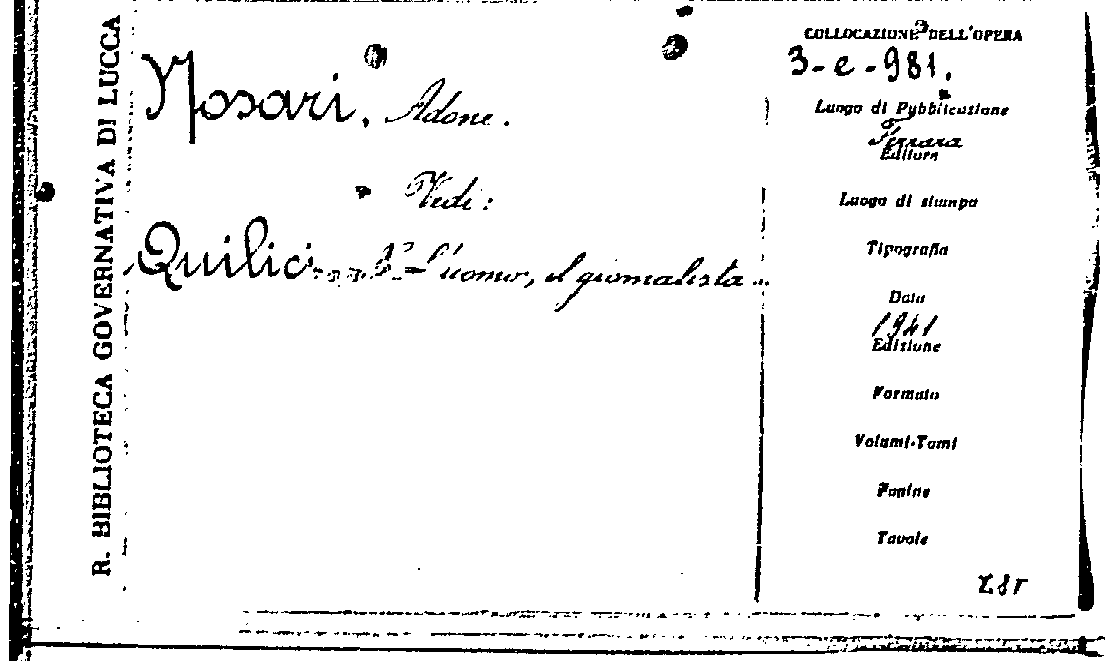 R. BIBLIOTECA GOVERNATIVA DI LUCCA
Nosari, Adone.
Vedi:
Quilici... L'uomo, il giornalista...
COLLOCAZIONE DELL'OPERA
3-e-981.
Luogo di Pubblicazione
Ferrara
Editore
Luogo di stampa
Tipografia
Data
1941
Edizione
Formato
Volumi-Tomi
Pagine
Tavole